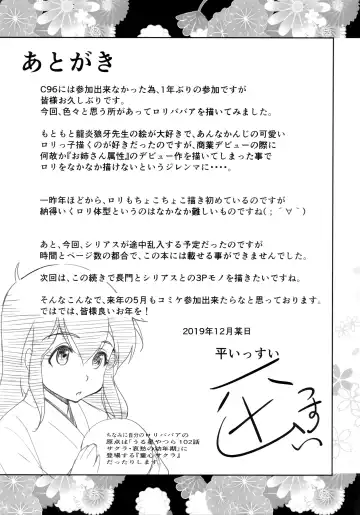 あとがき
C96には参加出来なかった為、1年ぶりの参加ですが
皆様お久しぶりです。
今回、色々と思う所があってロリババアを描いてみました。
もともと龍炎狼牙先生の絵が大好きで、あんなかんじの可愛い
ロリっ子描くのが好きだったのですが、商業デビューの際に
何故か『お姉さん属性』のデビュー作を描いてしまった事で
ロリをなかなか描けないというジレンマに・・・。
一昨年ほどから、ロリもちょこちょこ描き始めているのですが
納得いくロリ体型というのはなかなか難しいものですね(；´∀｀)
あと、今回、シリアスが途中乱入する予定だったのですが
時間とページ数の都合で、この本には載せる事ができませんでした。
次回は、この続きで長門とシリアスとの3Pモノを描きたいですね。
そんなこんなで、来年の5月もコミケ参加出来たらなと思っております。
ではでは、皆様良いお年を！
2019年12月某日
平いっすい
ちなみに自分のロリババアの
原点は「うる星やつら102話
サクラ・哀愁の幼年期」に
登場する『童心サクラ』
だったりします。